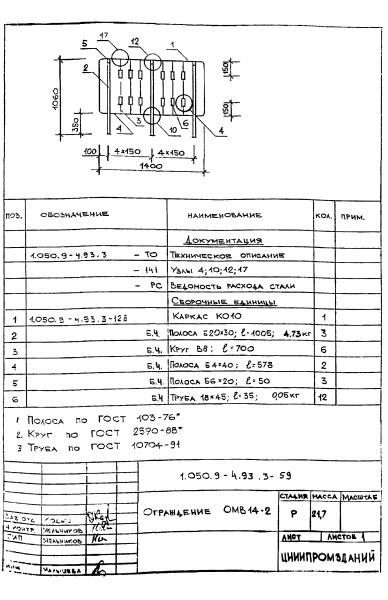 17
12
1
5
2
1060
350
150
150
4
3
10
6
4
100
4×150
4×150
1400
ПОЗ. ОБОЗНАЧЕНИЕ НАИМЕНОВАНИЕ КОЛ. ПРИМ.
ДОКУМЕНТАЦИЯ
1.050.9-4.93.3 - ТО ТЕХНИЧЕСКОЕ ОПИСАНИЕ
- 141 УЗЛЫ 4;10;12;17
- РС ВЕДОМОСТЬ РАСХОДА СТАЛИ
СБОРОЧНЫЕ ЕДИНИЦЫ
1 1.050.9-4.93.3-128 КАРКАС КО10 1
2 Б.Ч. ПОЛОСА Б20×30; ℓ=1005; 4,73кг 3
3 Б.Ч. КРУГ В8; ℓ=700 6
4 Б.Ч. ПОЛОСА Б4×40; ℓ=578 2
5 Б.Ч. ПОЛОСА Б6×20; ℓ=50 3
6 Б.Ч ТРУБА 18×45; ℓ=35; 0,05кг 12
1 ПОЛОСА ПО ГОСТ 103-76*
2. КРУГ ПО ГОСТ 2590-88*
3 ТРУБА ПО ГОСТ 10704-91
1.050.9-4.93.3-59
ОГРАЖДЕНИЕ ОМВ14-2
СТАДИЯ МАССА МАСШТАБ
Р 21,7
ЛИСТ ЛИСТОВ 1
ЦНИИПРОМЗДАНИЙ
МЕЛЬНИКОВ
МЕЛЬНИКОВ